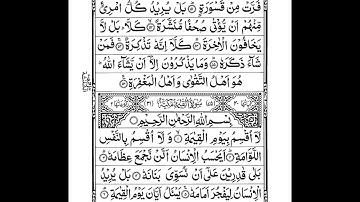 فَرَّتْ مِنْ قَسْوَرَةٍ ۝ بَلْ يُرِيْدُ كُلُّ امْرِئٍ
مِّنْهُمْ اَنْ يُّؤْتٰى صُحُفًا مُّنَشَّرَةً ۝ كَلَّا ؕ بَلْ لَّا
يَخَافُوْنَ الْاٰخِرَةَ ۝ كَلَّاۤ اِنَّهٗ تَذْكِرَةٌ ۝ فَمَنْ
شَآءَ ذَكَرَهٗ ۝ وَمَا يَذْكُرُوْنَ اِلَّاۤ اَنْ يَّشَآءَ اللّٰهُ ؕ
هُوَ اَهْلُ التَّقْوٰى وَاَهْلُ الْمَغْفِرَةِ ۝
(٧٥) سُوْرَةُ الْقِيٰمَةِ مَكِّيَّةٌ (٣١)
بِسْمِ اللّٰهِ الرَّحْمٰنِ الرَّحِيْمِ
لَاۤ اُقْسِمُ بِيَوْمِ الْقِيٰمَةِ ۝ وَلَاۤ اُقْسِمُ بِالنَّفْسِ
اللَّوَّامَةِ ۝ اَيَحْسَبُ الْاِنْسَانُ اَلَّنْ نَّجْمَعَ عِظَامَهٗ ۝
بَلٰى قٰدِرِيْنَ عَلٰۤى اَنْ نُّسَوِّيَ بَنَانَهٗ ۝ بَلْ يُرِيْدُ
الْاِنْسَانُ لِيَفْجُرَ اَمَامَهٗ ۝ يَسْئَلُ اَيَّانَ يَوْمُ الْقِيٰمَةِ ۝